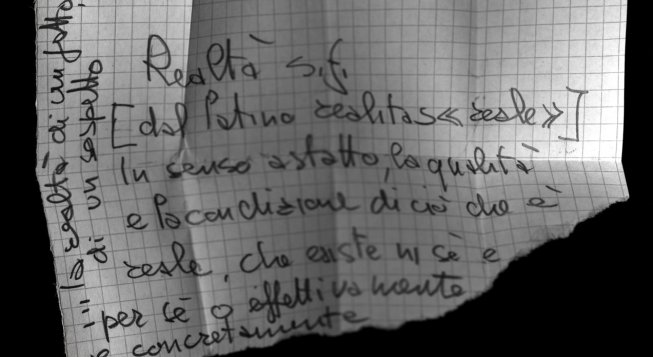 Realtà s.f.
[dal latino realitas « reale »]
In senso astatto, la qualità
e la condizione di ciò che è
reale, che esiste in sè e
per sè o effettivamente
e concretamente
la realtà di un fatto,
di un aspetto